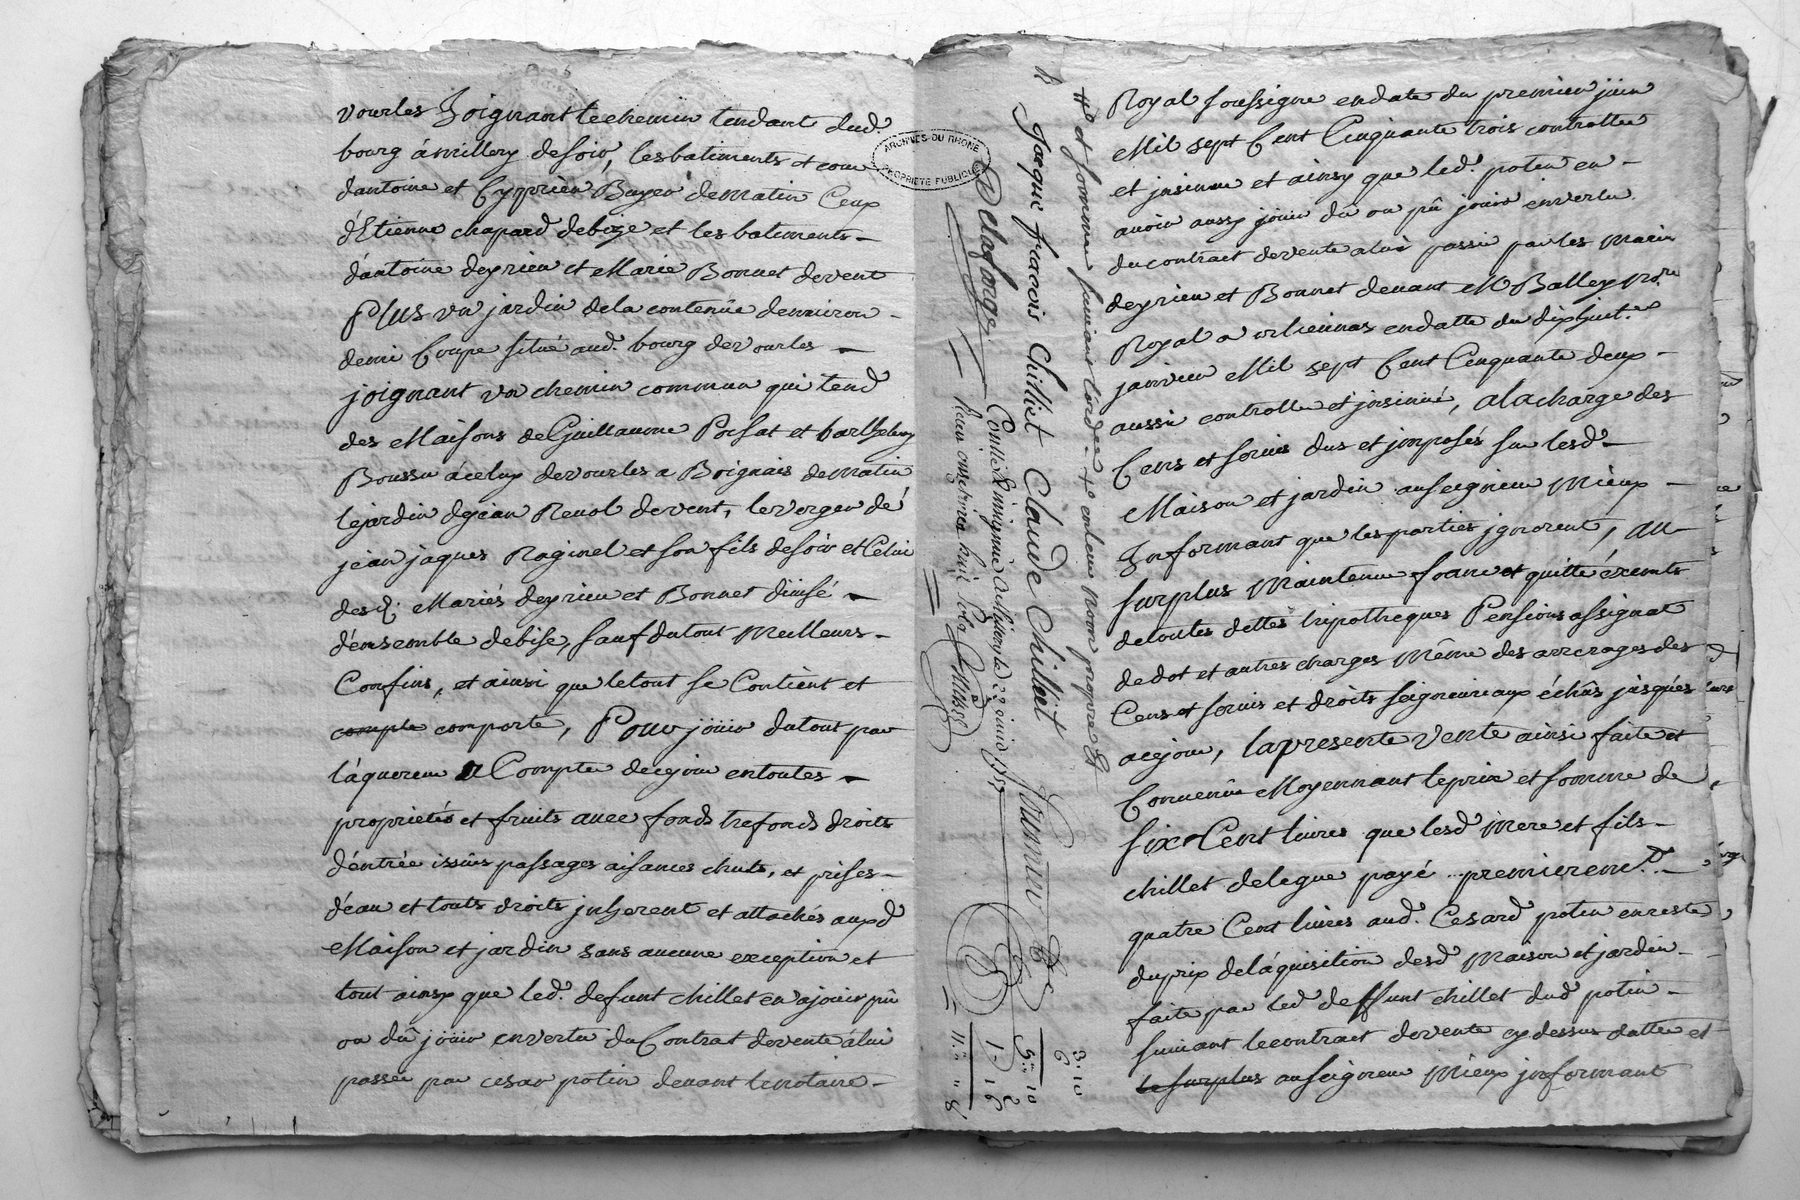 vourles Joignant le chemin tendant dud.
bourg á millery de soir, les batiments et cour
dantoine et Cyprien Buyer de matin Ceux
d'Etienne chapard debize et les batiments –
d'antoine deyrieu et Marie Bonnet de vent
Plus un jardin de la contenüe denviron –
demi Coupe situé aud. bourg de vourles –
joignant un chemin commun qui tend
des Maisons de Guillaume Possat et barthelemy
Boussu à celuy de vourles a Boignais de matin
le jardin de jean Renol de vent, le verger de
jean jaques Raginel et son fils de soir et Celui
desd. Mariés deyrieu et Bonnet divisé –
d'ensemble de bise, sauf du tout Meilleurs –
Confins, et ainsi que le tout se Contient et
compte comporte, Pour joüir du tout par
l'aquereur a Compter de ce jour en toutes –
proprietés et fruits avec fonds trefonds droits
d'éntrée issuës passages aisances chuts, et prises –
d'eau et touts droits jnherent et attachés auxd
Maison et jardin sans aucune exception et
tout ainsy que led. defunt chillet en a joüir pû
ou dû joüir en vertu du Contrat de vente á lui
passée par cesar potin devant le notaire –
ARCHIVES DU RHONE
PROPRIETE PUBLIQUE
Delaforge
Jacque fracois Chilliet Claude Chilliet
et en leur nom propre
Royal soussigne en date du premier juin
Mil sept Cent Cinquante trois controllée
et jnsinuée et ainsy que led. potin en –
avoir aussy joüir du ou pû joüir en vertu
du contract de vente a lui passée par les Mariés
deyrieu et Bonnet devant Me Balley no.re
Royal a orliennas en datte du dix huit.e
janvier Mil sept Cent Cinquante deux –
aussi controllé et jnsinué, a la charge des
Cens et servis dus et jmposés sur lesd –
Maison et jardin au seigneur Mieux –
Jnformant que les parties jgnorent, au –
surplus Maintenue franc et quitte éxempts
de toutes dettes hipotheques Pensions assignat
de dot et autres charges Même des arrerages des
Cens et servis et droits seigneuriaux échûs jusqués
a ce jour, la presente Vente ainsi faite et
Convenüe Moyennant le prix et somme de
six Cent livres que lesd mere et fils –
chillet delegue payé premierem.t –
quatre Cent livres aud. Cesard potin en reste
du prix de l'áquisition desd Maison et jardin –
faite par led deffunt chillet dud potin –
suivant le contract de vente cy dessus datté et
le surplus au seigneur Mieux jnformant